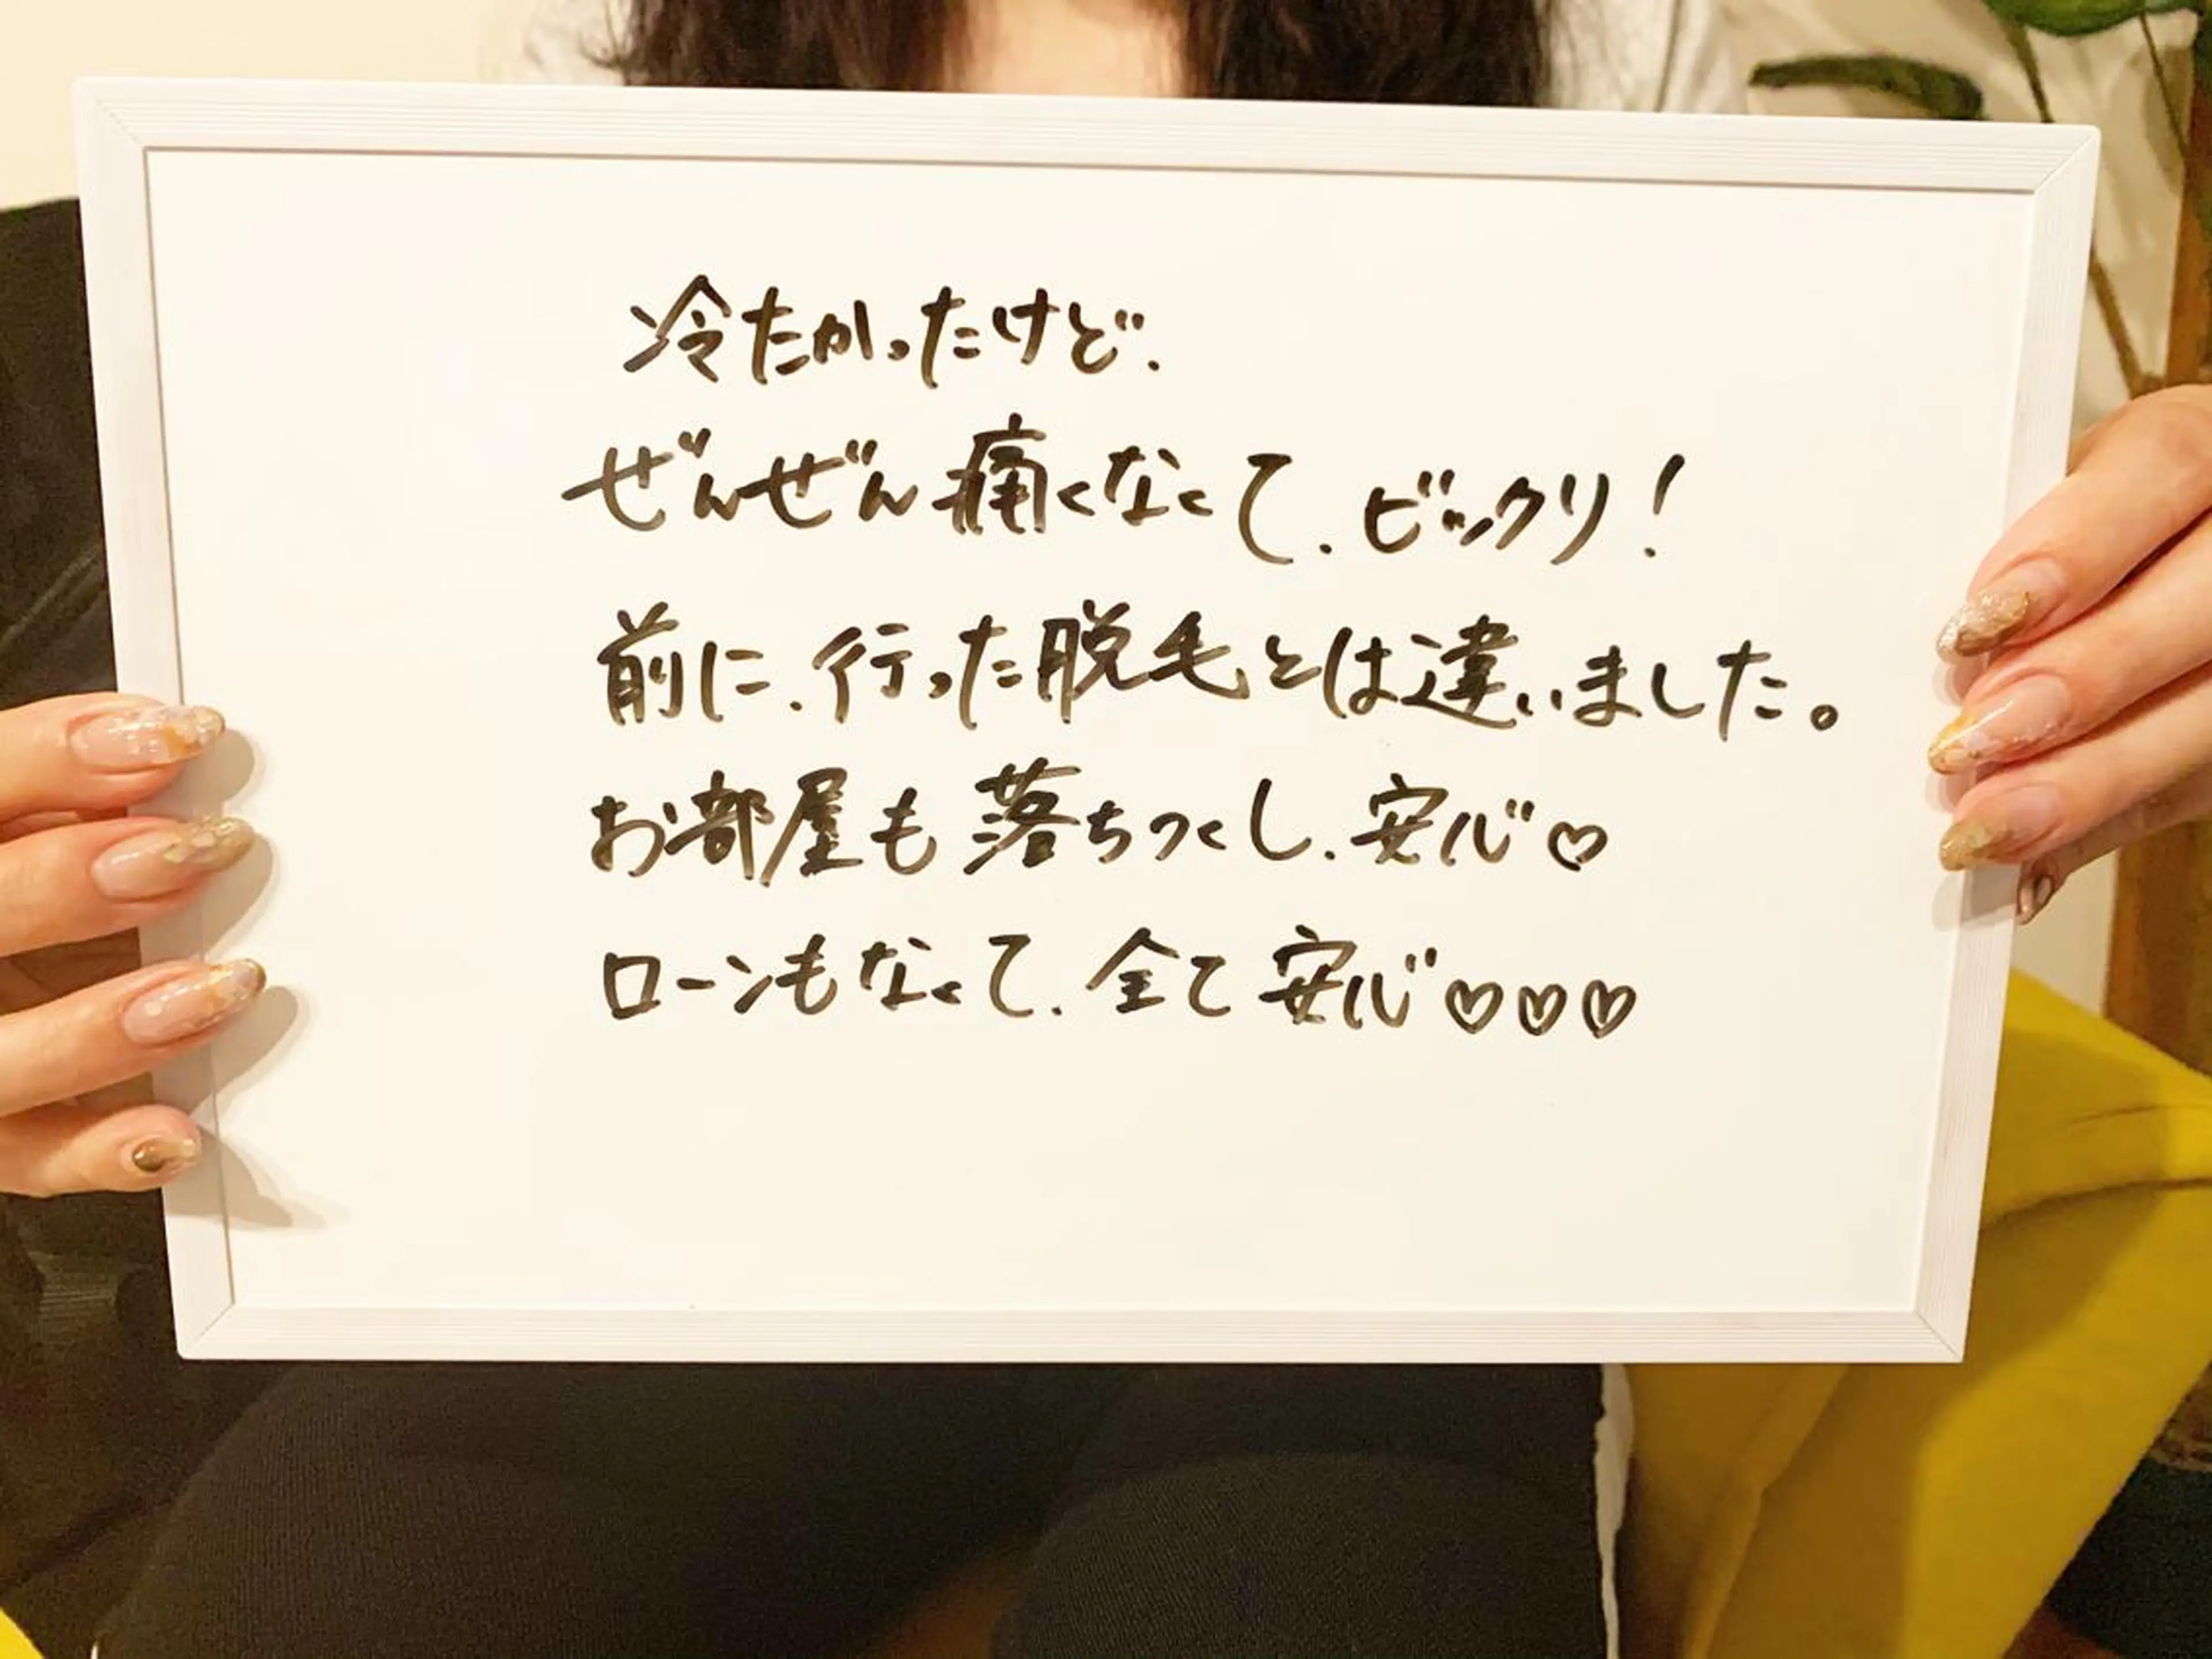 冷たかったけど、
ぜんぜん痛くなくて、ビックリ！
前に、行った脱毛とは違いました。
お部屋も落ちつくし、安心♡
ローンもなくて、全て安心♡♡♡